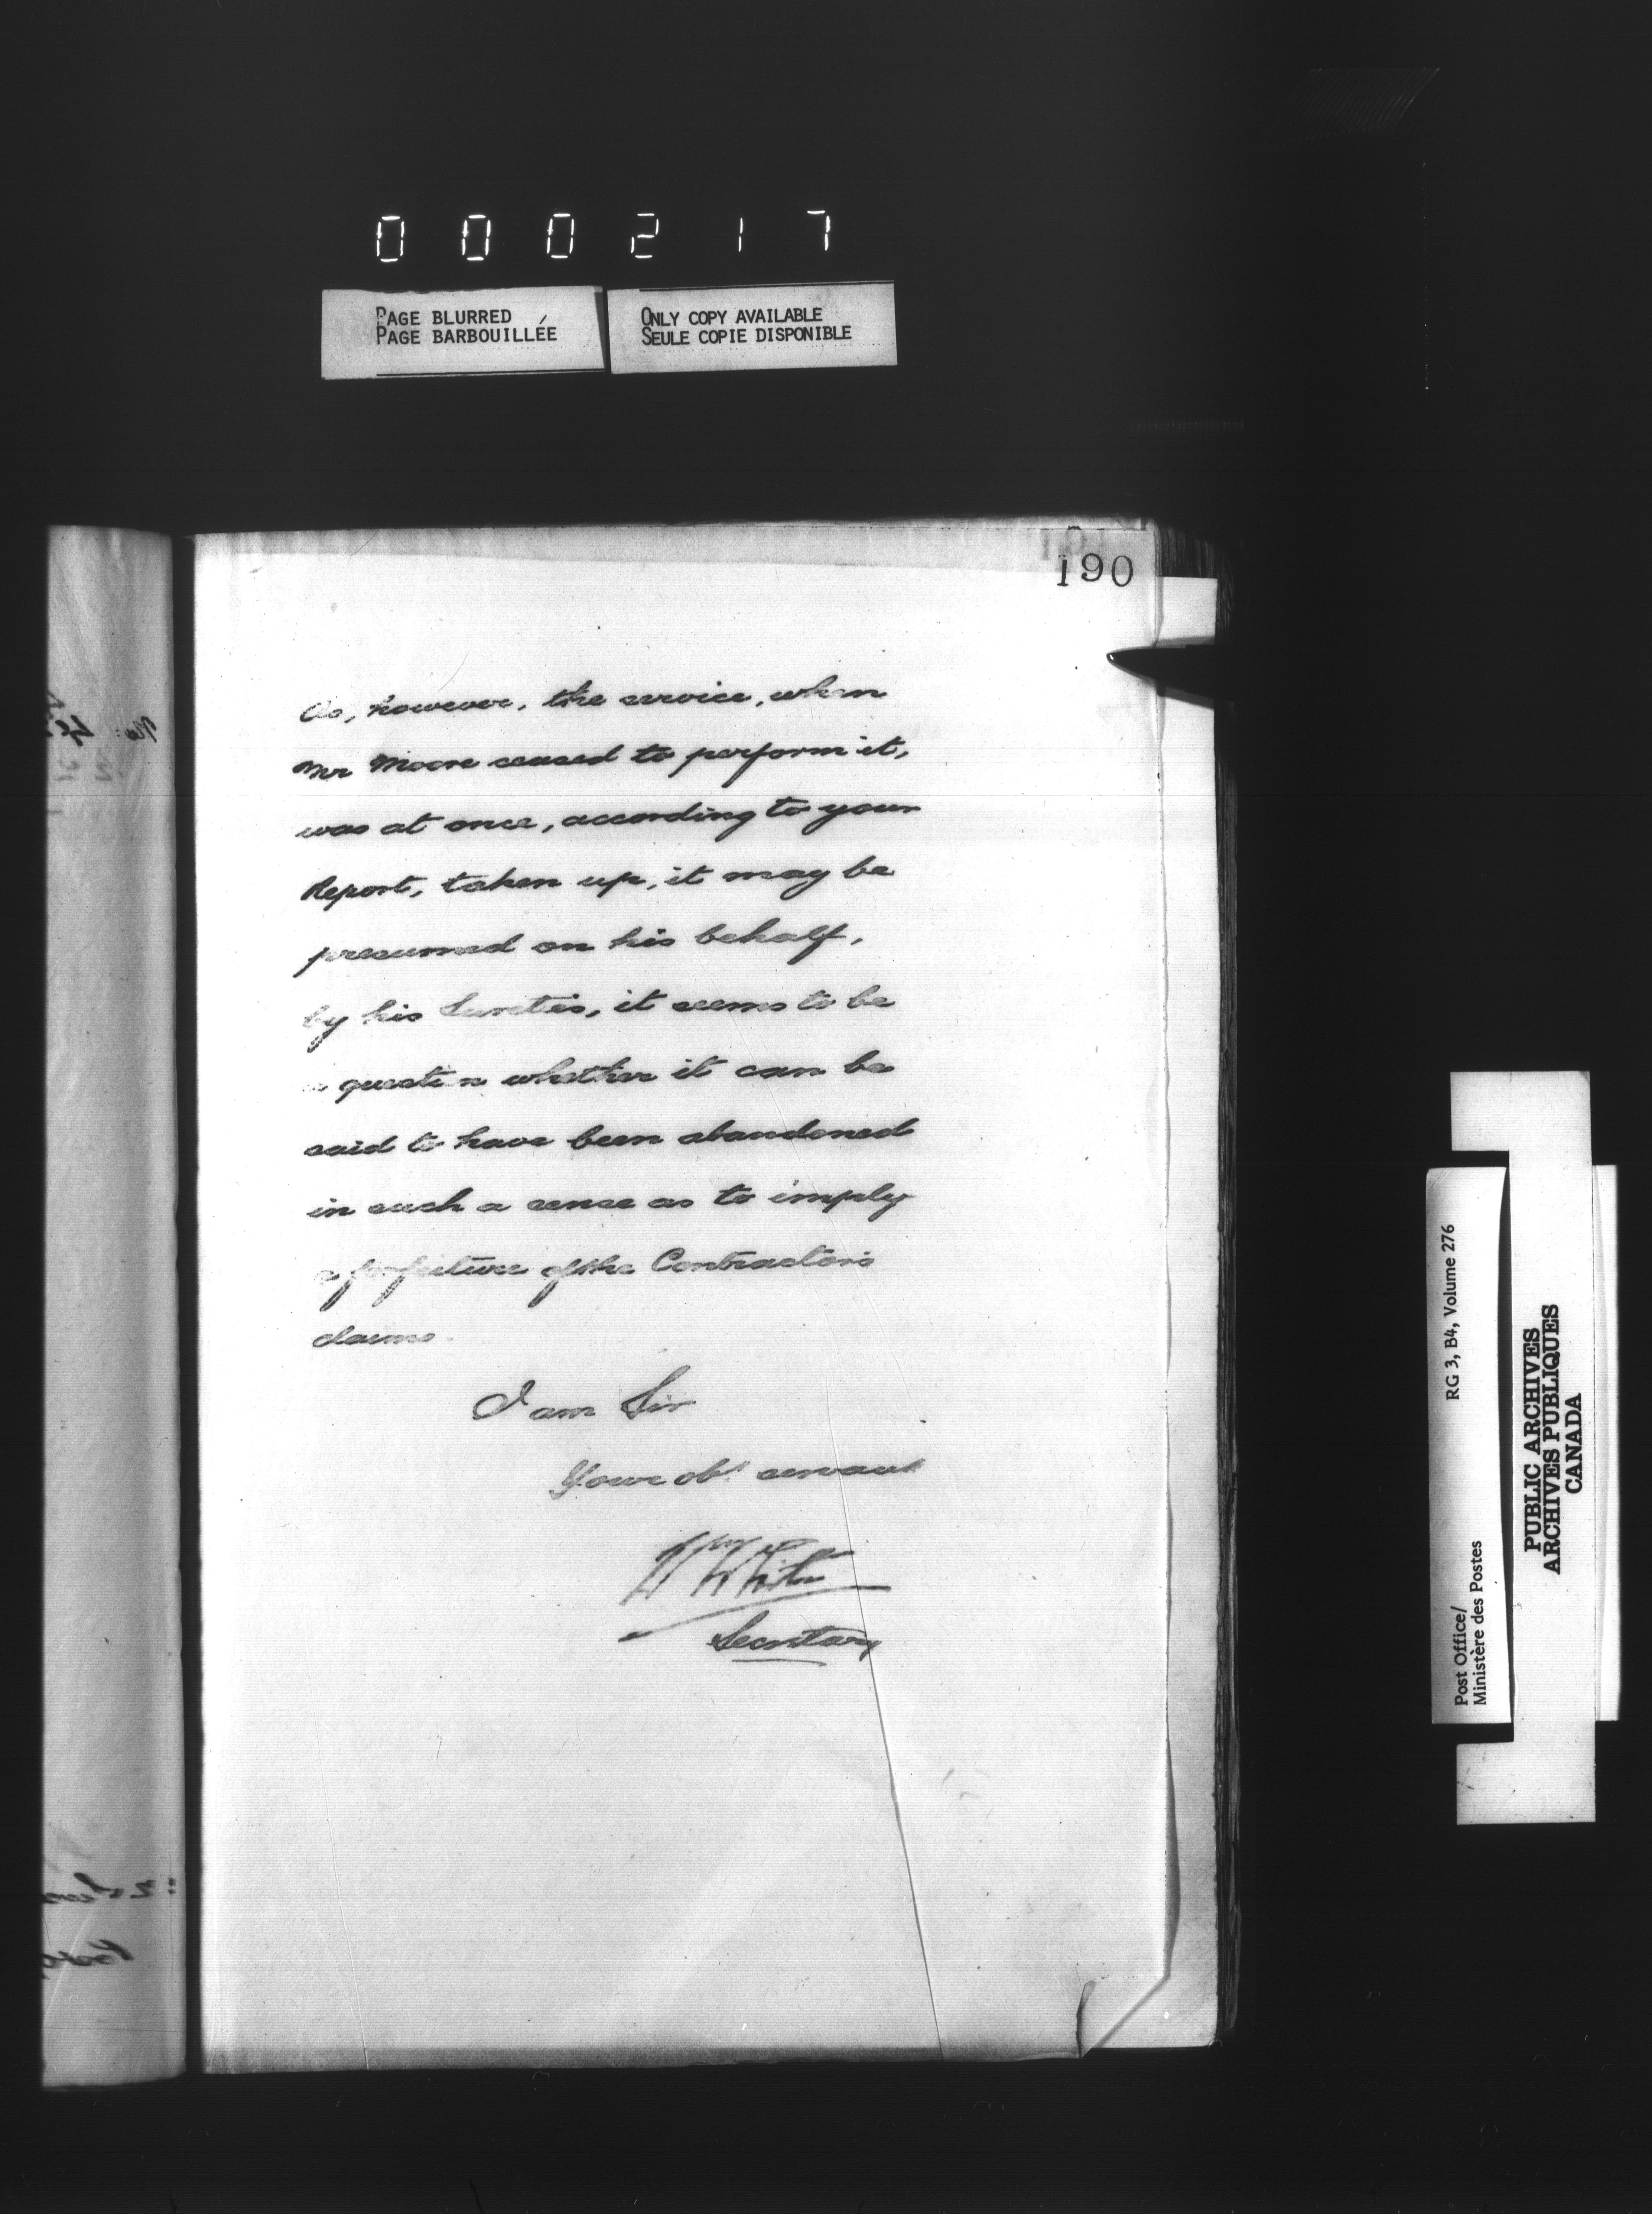 000217
PAGE BLURRED
PAGE BARBOUILLÉE
ONLY COPY AVAILABLE
SEULE COPIE DISPONIBLE
190
As, however, the service, when
Mr Moore ceased to perform it,
was at once, according to your
Report, taken up, it may be
presumed on his behalf,
by his Sureties, it seems to be
a question whether it can be
said to have been abandoned
in such a sense as to imply
a forfeiture of the Contractor's
claims.
I am Sir
Your obt servant
Wm White
Secretary
Post Office/
Ministère des Postes
RG 3, B4, Volume 276
PUBLIC ARCHIVES
ARCHIVES PUBLIQUES
CANADA